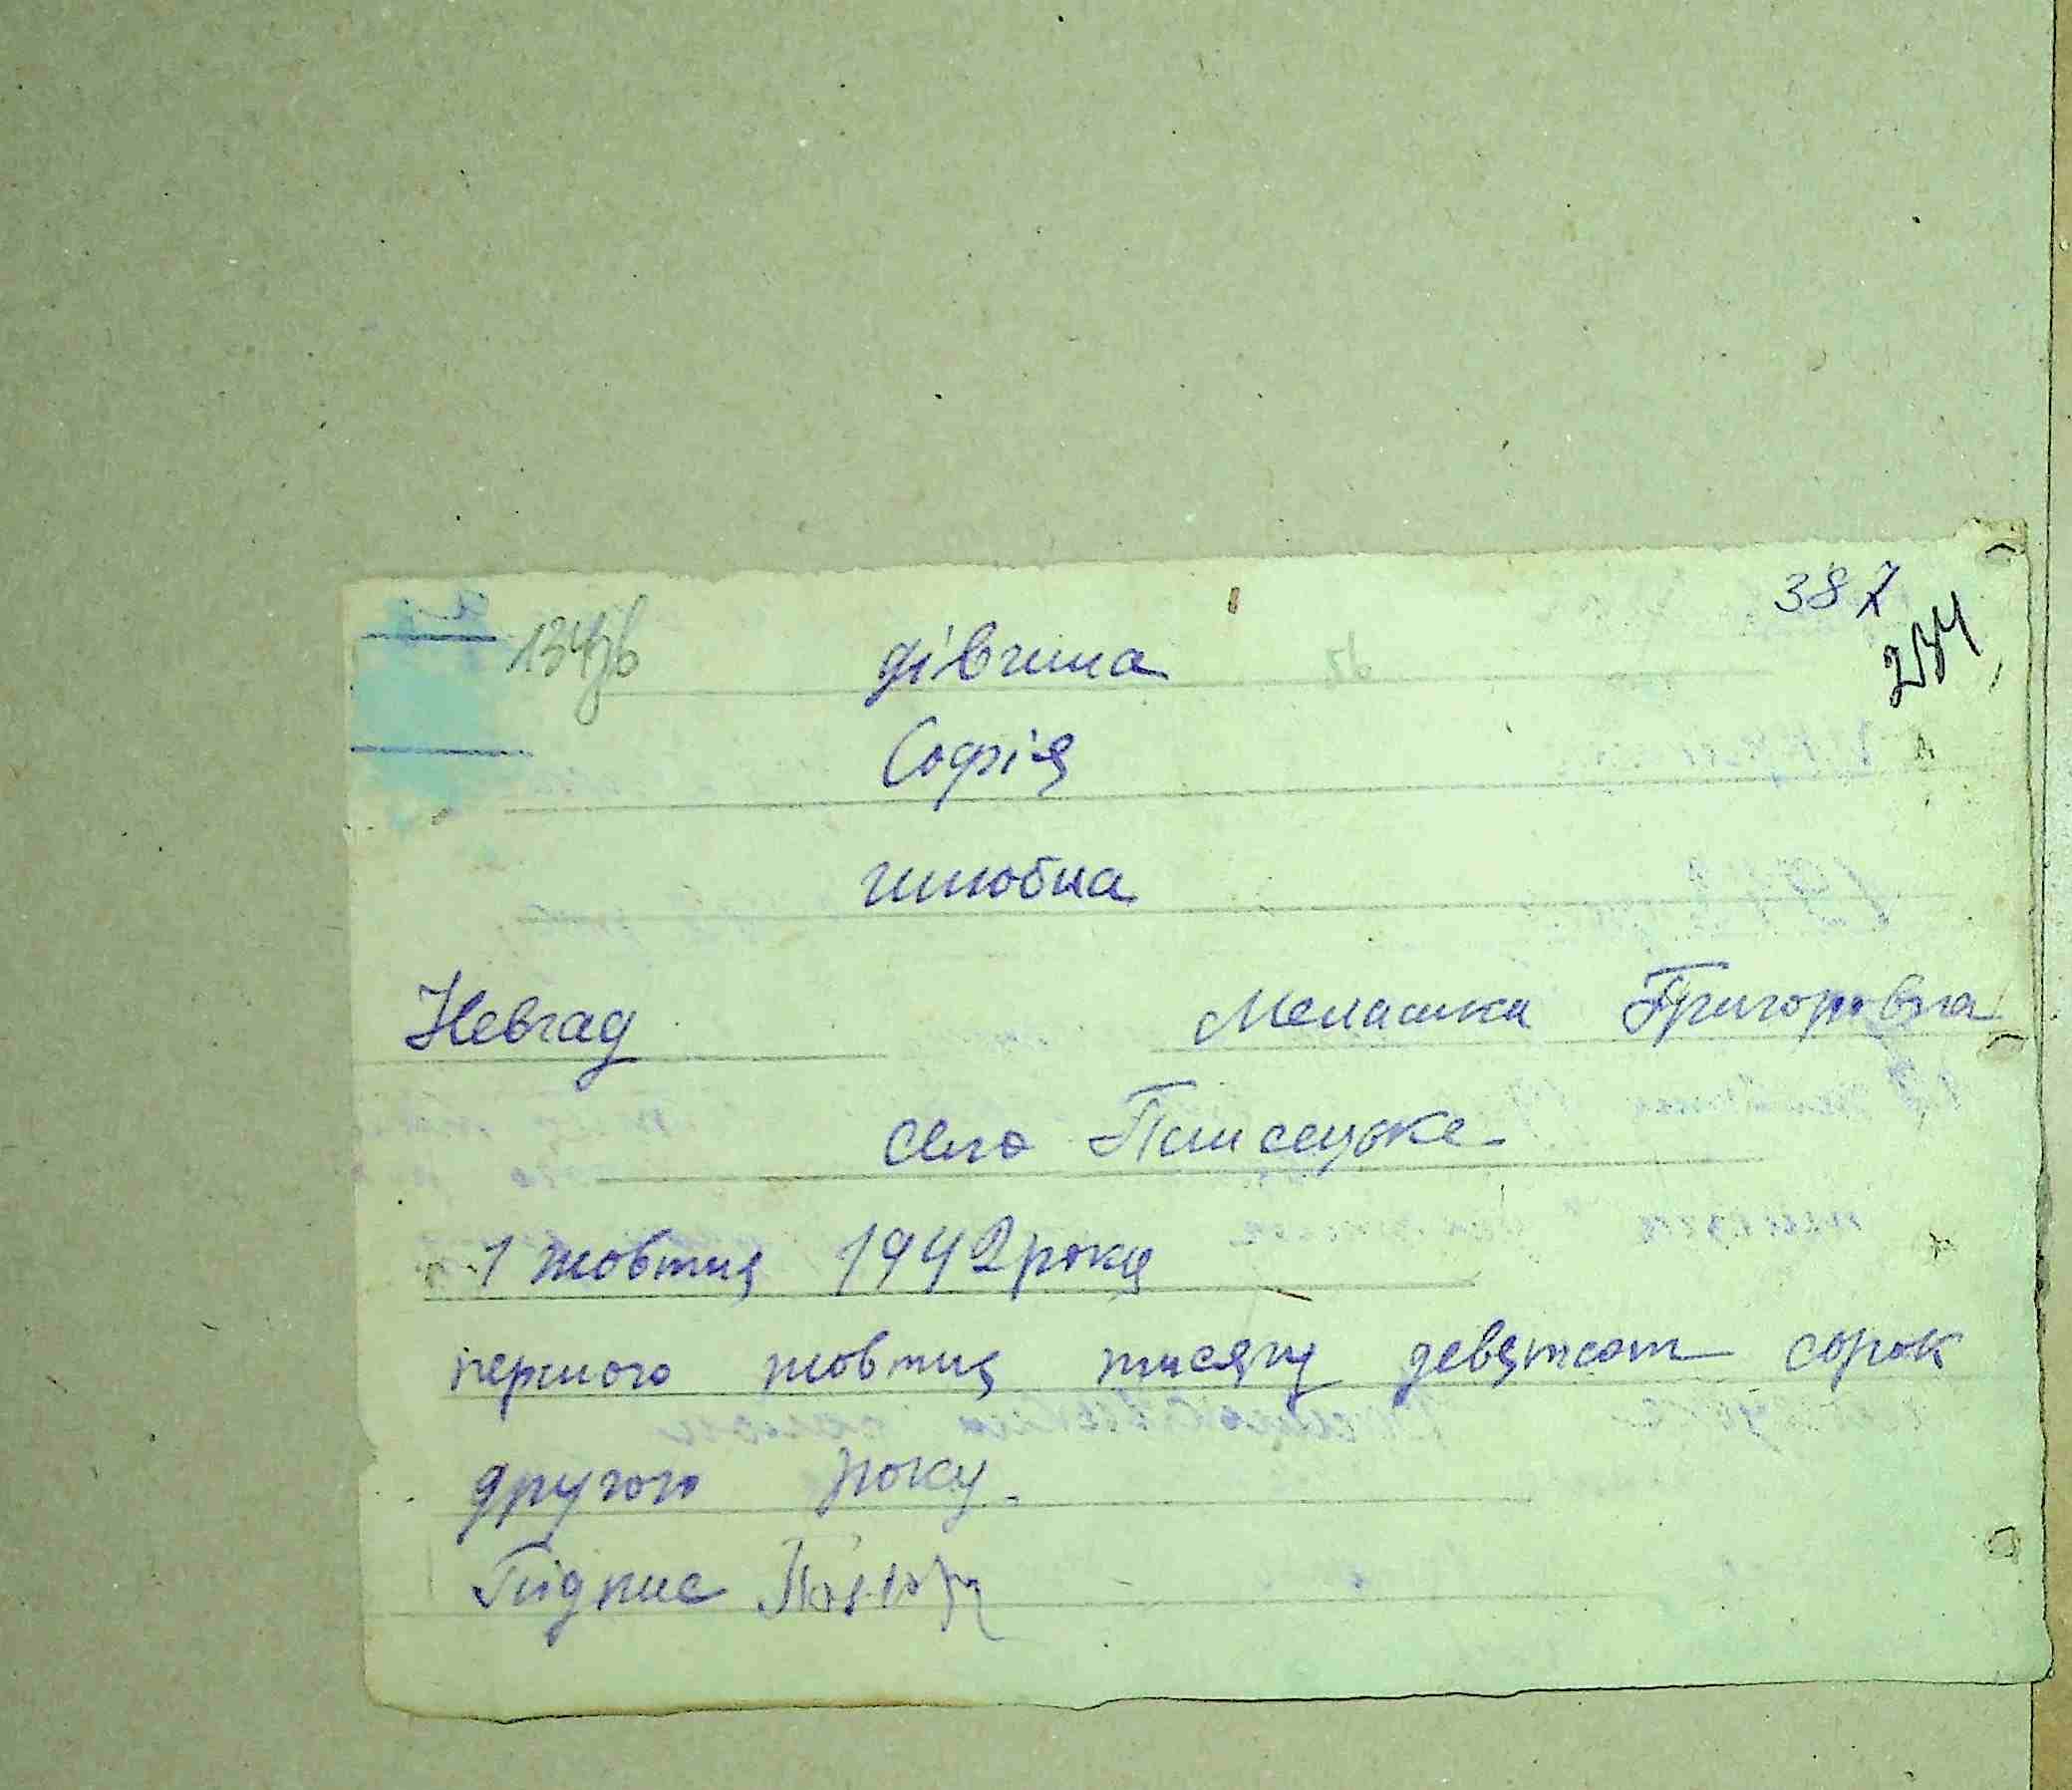 387
134зв
234
дівчина
Софія
шлюбна
Невгад Мелашка Григоровна
село Писецьке
1 жовтня 1942 року
першого жовтня тисячу девятсот сорок
другого року.
Підпис